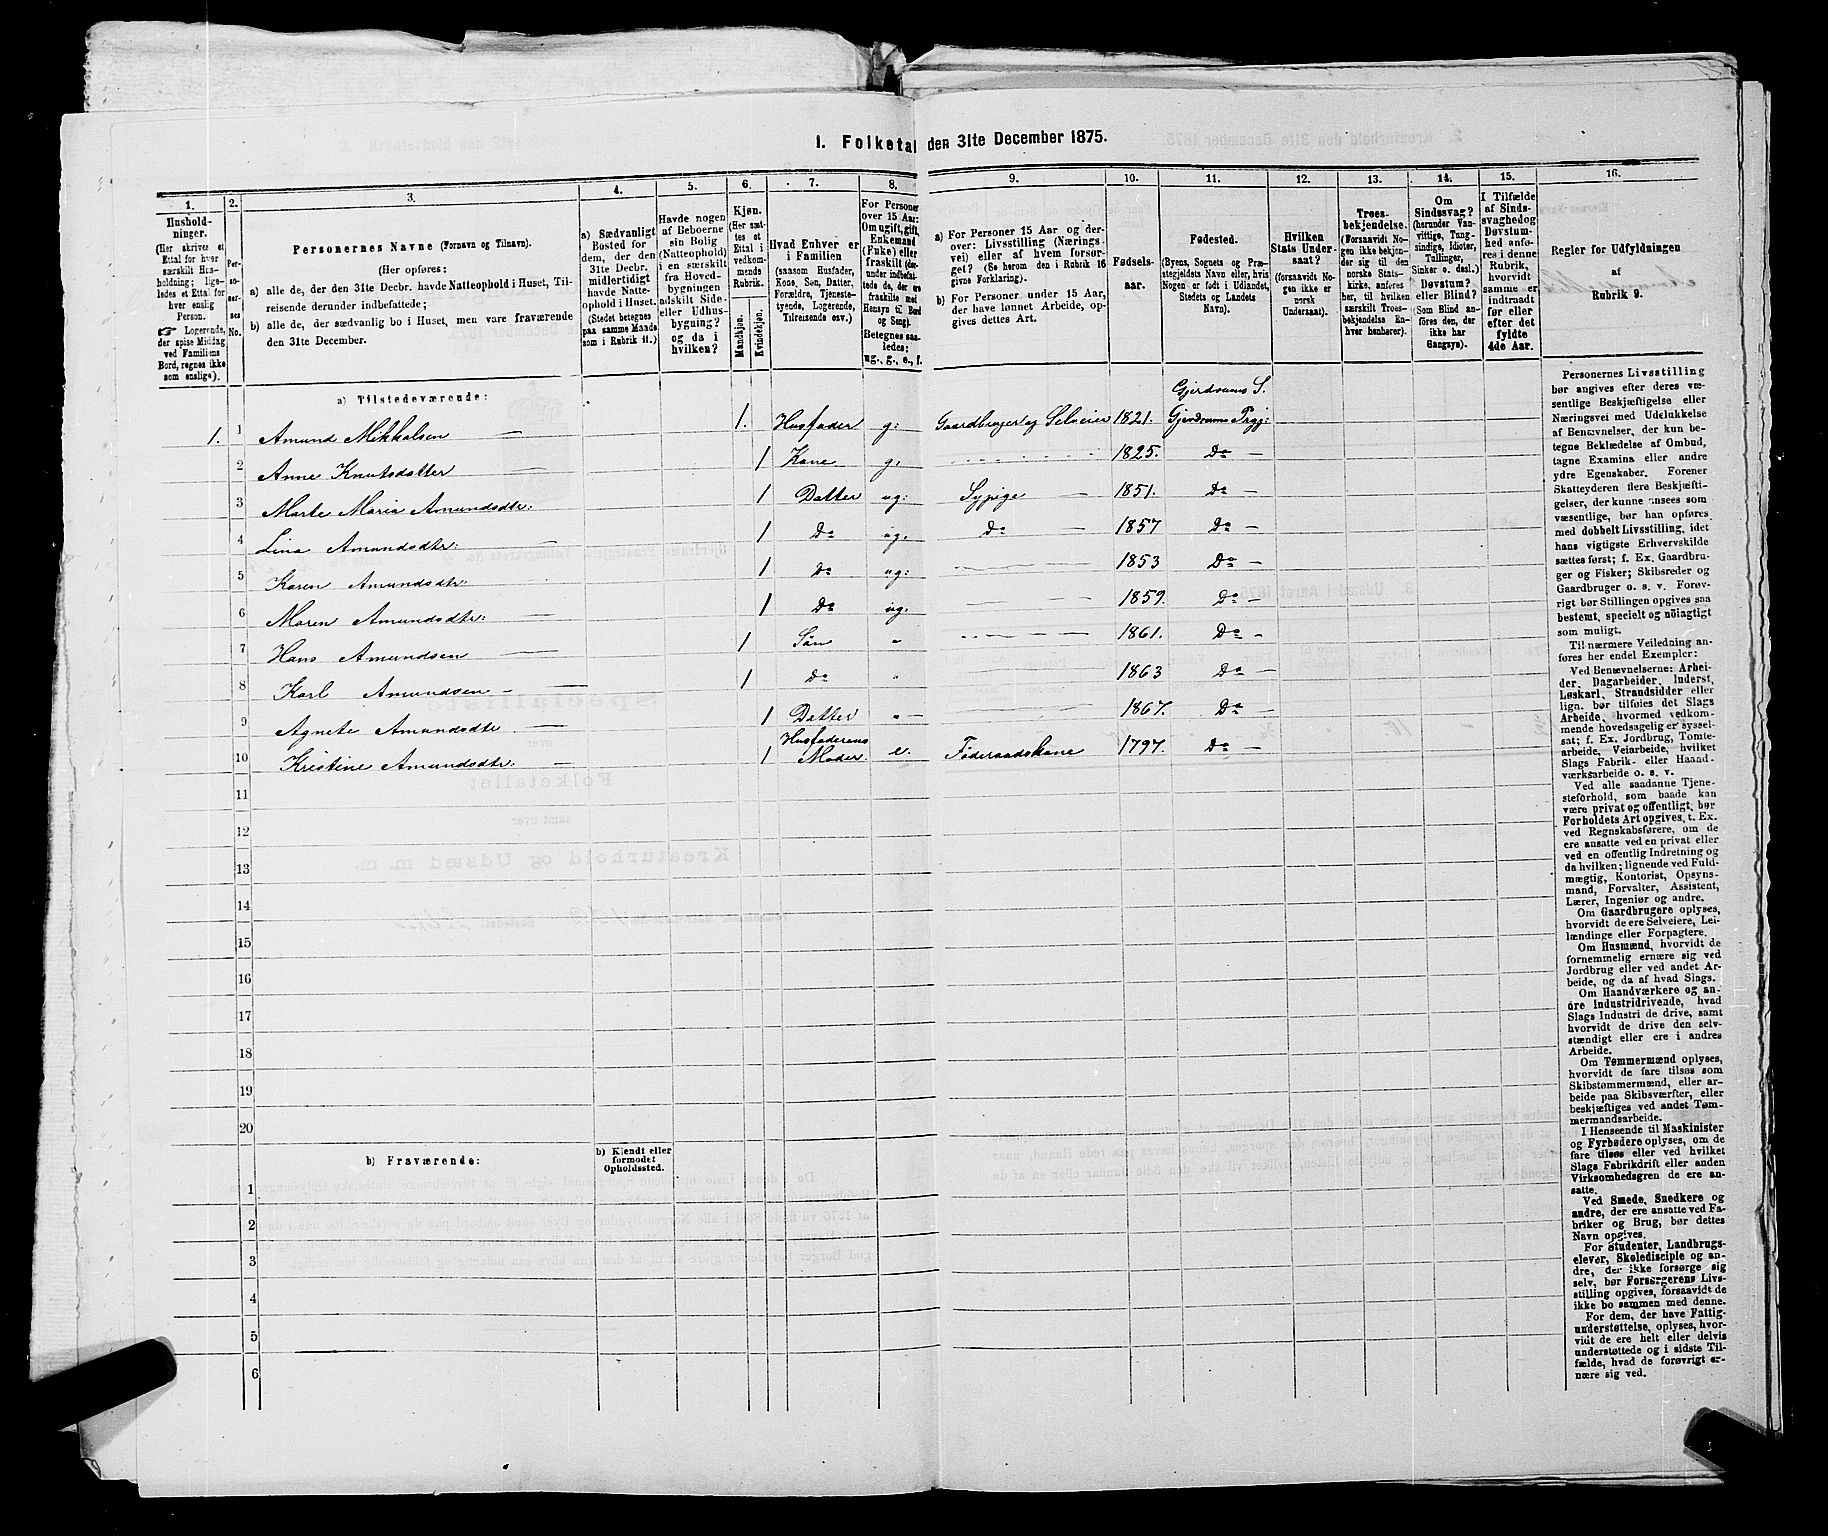 1. Folketal den 31te December 1875.
1.
2.
3.
4.
5.
6.
7.
8.
9.
10.
11.
12.
13.
14.
15.
16.
Husholdninger.
(Her skrives et Ettal for hver særskilt Husholdning; ligeledes et Ettal for hver enslig Person.
☞ Logerende, der spise Middag ved Familiens Bord, regnes ikke som enslige).
Personernes No.
Personernes Navne (Fornavn og Tilnavn).
(Her opføres:
a) alle de, der den 31te Decbr. havde Natteophold i Huset, Tilreisende derunder indbefattede;
b) alle de, der sædvanlig bo i Huset, men vare fraværende den 31te December.
a) Sædvanligt Bosted for dem, der den 31te Decbr. midlertidigt havde Natteophold i Huset. (Stedet betegnes paa samme Maade som i Rubrik 11.)
Havde nogen af Beboerne sin Bolig (Natteophold) i en særskilt fra Hovedbygningen adskilt Side- eller Udhusbygning? og da i hvilken?
Kjøn. (Her sættes et Ettal i vedkommende Rubrik.
Mandkjøn.
Kvindekjøn.
Hvad Enhver er i Familien
(saasom Husfader, Kone, Søn, Datter, Forældre, Tjenestetyende, Logerende, Tilreisende osv.)
For Personer over 15 Aar: Om ugift, gift, Enkemand (Enke) eller fraskilt (derunder indbefattede, de, der ere fraskilte med Hensyn til Bord og Seng).
Betegnes saaledes: ug., g., e., f.
a) For Personer 15 Aar og derover: Livsstilling (Næringsvei) eller af hvem forsørget? (Se herom den i Rubrik 16 givne Forklaring).
b) For Personer under 15 Aar, der have lønnet Arbeide, opgives dettes Art.
Fødselsaar.
Fødested.
(Byens, Sognets og Præstegjeldets Navn eller, hvis Nogen er født i Udlandet, Stedets og Landets Navn).
Hvilken Stats Undersaat?
(forsaavidt Nogen ikke er norsk Undersaat).
Troesbekjendelse.
(Forsaavidt Nogen ikke bekjender sig til den norske Statskirke, anføres her, til hvilken særskilt Troesbekjendelse Enhver henhører).
Om Sindssvag? (herunder Vanvittige, Tungsindige, Idioter, Tullinger, Sinker o. desl.) Døvstum? eller Blind? (Som Blind anføres den, der ikke har Gangsyn).
I Tilfælde af Sindssvaghed og Døvstumhed anføres i denne Rubrik, hvorvidt samme er indtraadt før eller efter det fyldte 4de Aar.
Regler for Udfyldningen af Rubrik 9.
a) Tilstedeværende:
Gjerdrums S.
1. 1 Amund Mikkalsen — 1. Husfader g: Gaardbruger og Selveier 1821. Gjerdrums Prgj:
2 Anne Knutsdatter — 1 Kone. g. 1825. Do —
3 Marte Maria Amundsdtr: 1 Datter ug: Sypige — 1851. Do —
4 Lina Amundsdtr: — 1 Do ug. Do — 1857 Do —
5 Karen Amundsdtr: 1 Do ug: 1853 Do —
6 Maren Amundsdtr: 1 Do ug. 1859. Do —
7 Hans Amundsen — 1 Søn " 1861. Do —
8 Karl Amundsen — 1 Do " 1863 Do —
9 Agnete Amundsdtr — 1 Datter " — 1867. Do —
10 Kristine Amundsdtr: 1 Husfaderens Moder. e. Føderaadskone 1797. Do —
11
12
13
14
15
16
17
18
19
20
b) Fraværende:
b) Kjendt eller formodet Opholdssted.
1
2
3
4
5
6
Personernes Livsstilling
bør angives efter deres væsentlige
Beskjæftigelse eller
Næringsvei med Udelukkelse
af Benævnelser, der kun betegne
Beklædelse af Ombud,
tagne Examina eller andre
ydre Egenskaber. Forener
Skatteyderen flere Beskjæftigelser,
der kunne ansees som
væsentlige, bør han opføres
med dobbelt Livsstilling, idet
hans vigtigste Erhvervskilde
sættes først; f. Ex. Gaardbruger
og Fisker; Skibsreder og
Gaardbruger o. s. v. Forøvrigt
bør Stillingen opgives saa
bestemt, specielt og nöiagtigt
som muligt.
Til nærmere Veiledning anføres
her endel Exempler:
Ved Benævnelserne: Arbeider,
Dagarbeider, Inderst,
Løskarl, Strandsidder eller
lign. bør tilføies det Slags
Arbeide, hvormed vedkommende
hovedsagelig er sysselsat;
f. Ex. Jordbrug, Tomtearbeide,
Veiarbeide, hvilket
Slags Fabrik- eller Haandværksarbeide
o. s. v.
Ved alle saadanne Tjenesteforhold,
som baade kan
være privat og offentligt, bør
Forholdets Art opgives, t. Ex.
ved Regnskabsførere, om de
ere ansatte ved en privat eller
ved en offentlig Indretning og
da hvilken; lignende ved Fuldmægtig,
Kontorist, Opsynsmand,
Forvalter, Assistent,
Lærer, Ingeniør og andre.
Om Gaardbrugere oplyses,
hvorvidt de ere Selveiere, Leilændinge
eller Forpagtere.
Om Husmænd, hvorvidt de
fornemmelig ernære sig ved
Jordbrug eller ved andet Arbeide,
og da af hvad Slags.
Om Haandværkere og andre
Industridrivende, hvad
Slags Industri de drive, samt
hvorvidt de drive den selvstændigt
eller ere i andres
Arbeide.
Om Tømmermænd oplyses,
hvorvidt de fare tilsøs som
Skibstømmermænd, eller arbeide
paa Skibsværfter, eller
beskjæftiges ved andet Tømmermandsarbeide.
I Henseende til Maskinister
og Fyrbødere oplyses, om de
fare tilsøs eller ved hvilket
Slags Fabrikdrift eller anden
Virksomhedsgren de ere ansatte.
Ved Smede, Snedkere og
andre, der ere ansatte ved Fabriker
og Brug, bør dettes
Navn opgives.
For Studenter, Landbrugselever,
Skoledisciple og andre,
der ikke forsørge sig
selv, bør Forsørgerens Livsstilling
opgives, forsaavidt de
ikke bo sammen med denne.
For dem, der have Fattigunderstøttelse,
oplyses, hvorvidt
de ere helt eller delvis
understøttede og i sidste Tilfælde,
hvad de forøvrigt ernære
sig ved.